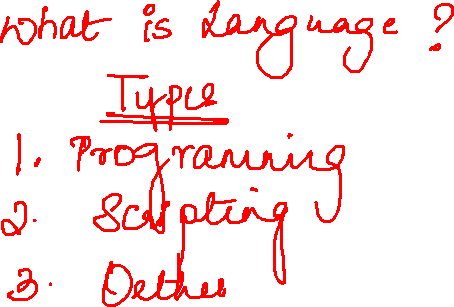 What is Language ?
Type
1. Programming
2. Scripting
3.